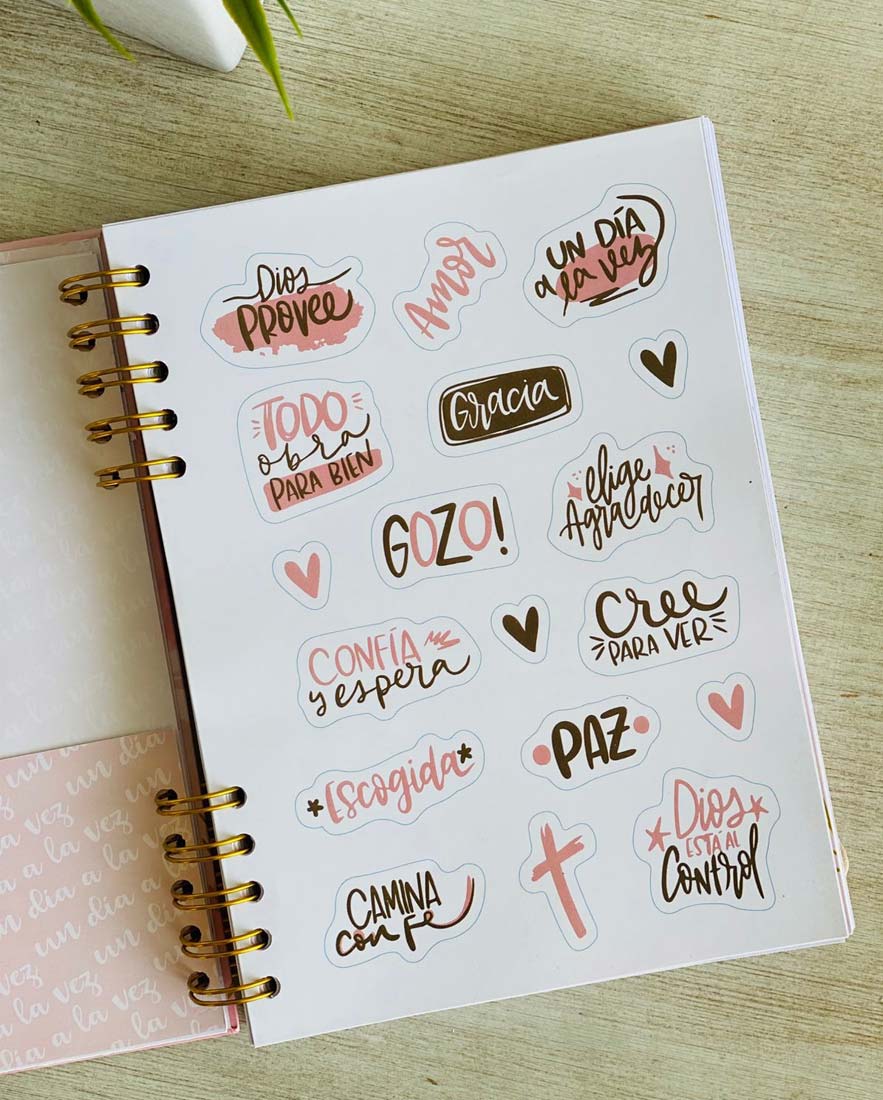 Dios
PROVEE
Amor
UN DÍA
a la vez
TODO
obra
PARA BIEN
Gracia
elige
Agradecer
GOZO!
CONFÍA
y espera
Cree
PARA VER
Escogida
PAZ
Dios
ESTÁ AL
Control
CAMINA
con Fe
un dia
a la vez un dia
a la vez
un dia a la vez
a la vez un dia
un dia a la vez